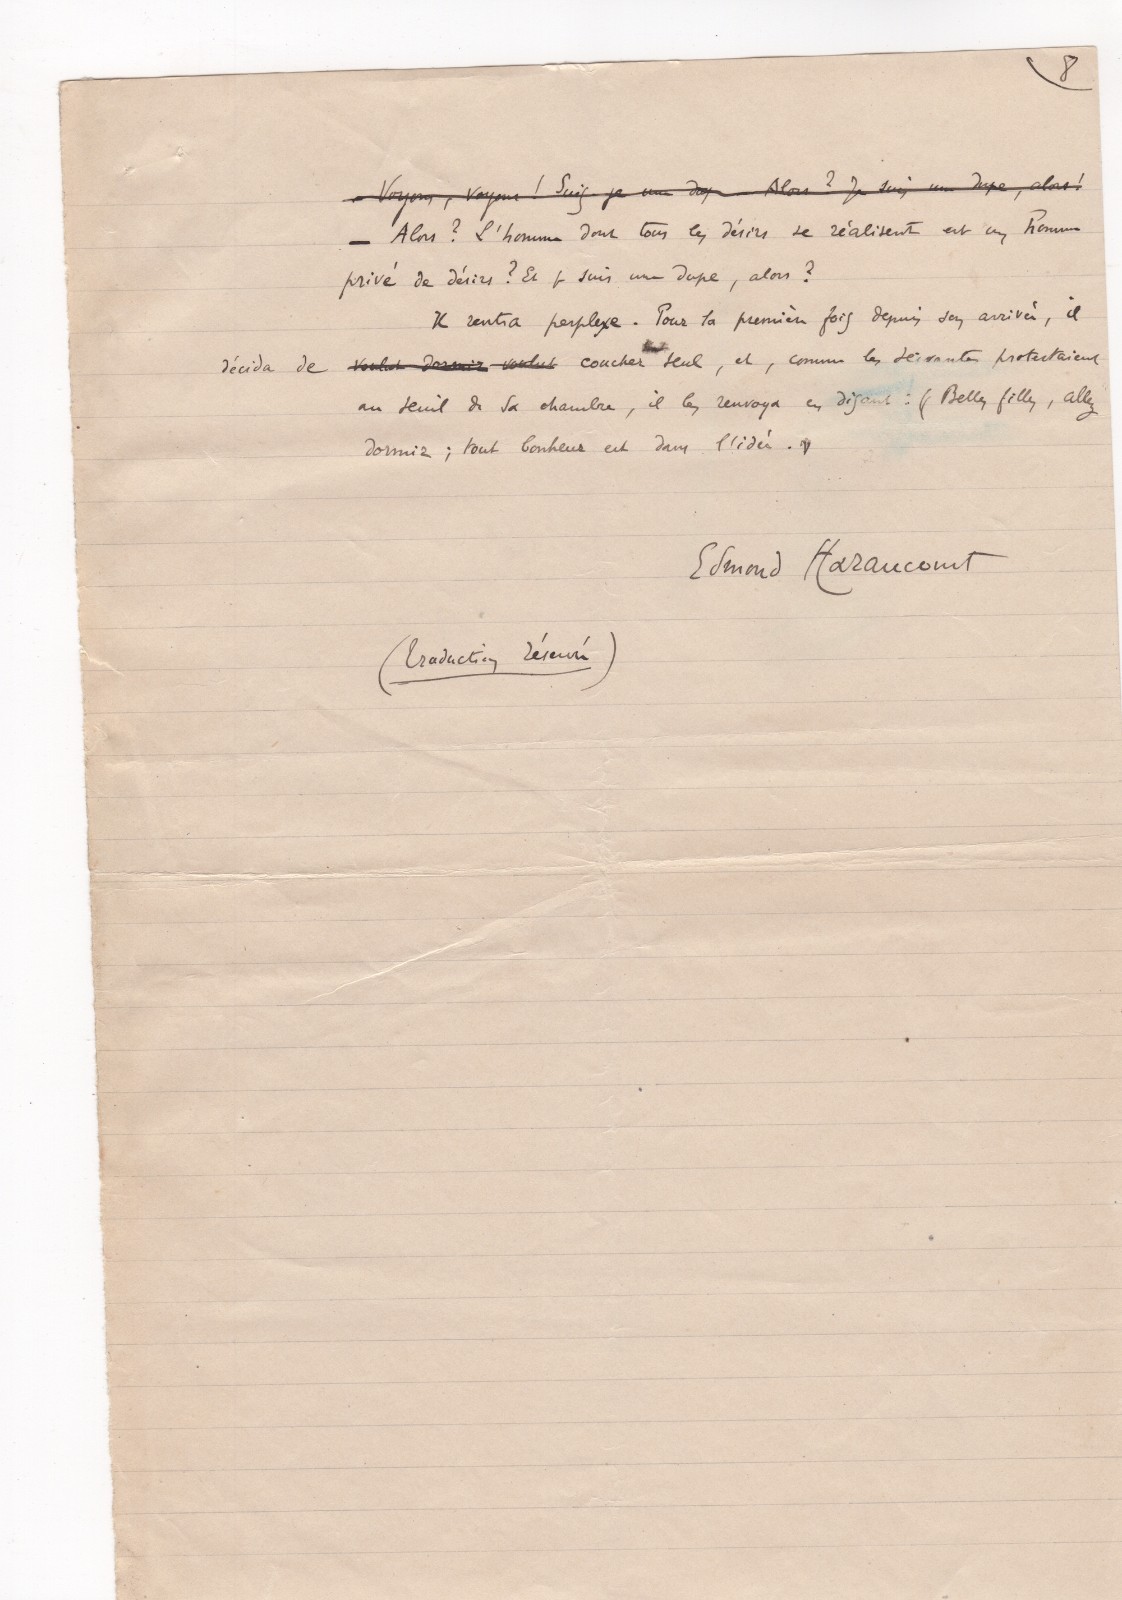 8
- Voyons, voyons ! Suis je une dup Alors ? Je suis une dupe, alors !
— Alors ? L'homme dont tous les désirs se réalisent est un homme
privé de désirs ? Et je suis une dupe, alors ?
Il rentra perplexe. Pour la première fois depuis son arrivée, il
décida de voulut dormir voulut coucher seul, et, comme les servantes protestaient
au seuil de sa chambre, il les renvoya en disant : « Belles filles, allez
dormir ; tout bonheur est dans l'idée. »
Edmond Haraucourt
(traduction réservée)